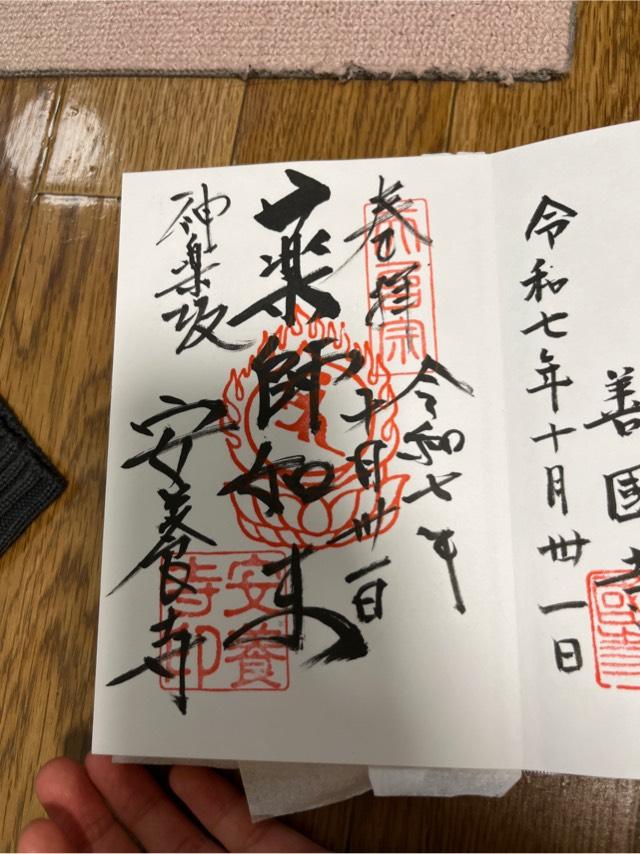 令和七年十月卅一日
善國寺
奉拝
令和七年
十月卅一日
薬師如来
神楽坂
安養寺
天台宗
安養寺印